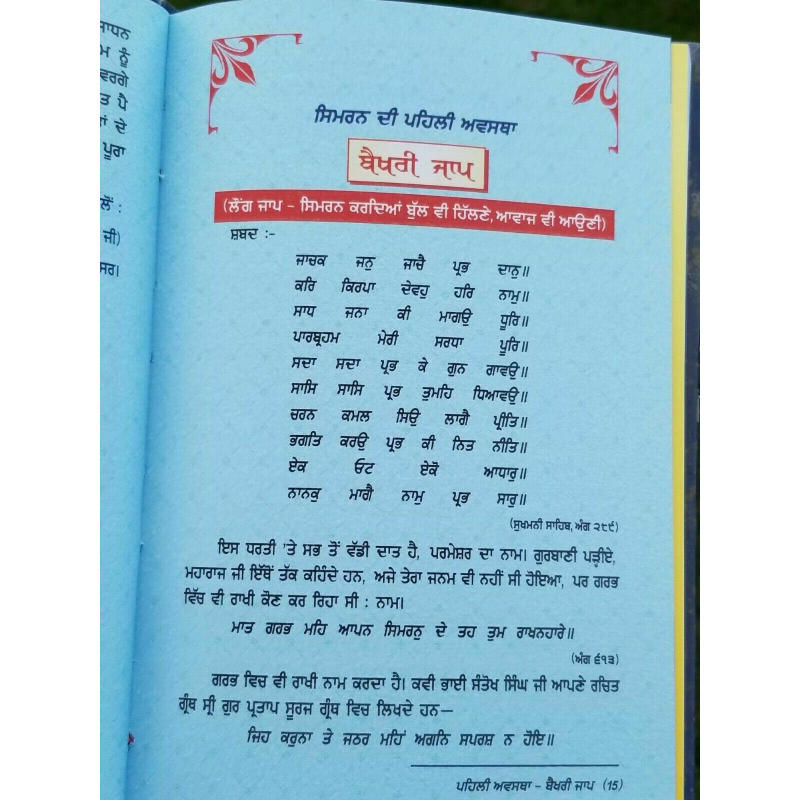 ਾਧਨ
ਮ ਨੂੰ
ਵਰਗੇ
ਤ ਪੈ
ਾਂ ਦੇ
ਪੂਰਾ
ਲੋਂ :
ਜੀ)
ਸਰ।
ਸਿਮਰਨ ਦੀ ਪਹਿਲੀ ਅਵਸਥਾ
ਬੈਖਰੀ ਜਾਪ
(ਲੌਂਗ ਜਾਪ – ਸਿਮਰਨ ਕਰਦਿਆਂ ਬੁੱਲ ਵੀ ਹਿੱਲਣੇ, ਆਵਾਜ ਵੀ ਆਉਣੀ)
ਸ਼ਬਦ :–
ਜਾਚਕ ਜਨੁ ਜਾਚੈ ਪ੍ਰਭ ਦਾਨੁ॥
ਕਰਿ ਕਿਰਪਾ ਦੇਵਹੁ ਹਰਿ ਨਾਮੁ॥
ਸਾਧ ਜਨਾ ਕੀ ਮਾਗਉ ਧੂਰਿ॥
ਪਾਰਬ੍ਰਹਮ ਮੇਰੀ ਸਰਧਾ ਪੂਰਿ॥
ਸਦਾ ਸਦਾ ਪ੍ਰਭ ਕੇ ਗੁਨ ਗਾਵਉ॥
ਸਾਸਿ ਸਾਸਿ ਪ੍ਰਭ ਤੁਮਹਿ ਧਿਆਵਉ॥
ਚਰਨ ਕਮਲ ਸਿਉ ਲਾਗੈ ਪ੍ਰੀਤਿ॥
ਭਗਤਿ ਕਰਉ ਪ੍ਰਭ ਕੀ ਨਿਤ ਨੀਤਿ॥
ਏਕ ਓਟ ਏਕੋ ਆਧਾਰੁ॥
ਨਾਨਕੁ ਮਾਗੈ ਨਾਮੁ ਪ੍ਰਭ ਸਾਰੁ॥
(ਸੁਖਮਨੀ ਸਾਹਿਬ, ਅੰਗ ੨੮੯)
ਇਸ ਧਰਤੀ 'ਤੇ ਸਭ ਤੋਂ ਵੱਡੀ ਦਾਤ ਹੈ, ਪਰਮੇਸ਼ਰ ਦਾ ਨਾਮ। ਗੁਰਬਾਣੀ ਪੜ੍ਹੀਏ,
ਮਹਾਰਾਜ ਜੀ ਇੱਥੋਂ ਤੱਕ ਕਹਿੰਦੇ ਹਨ, ਅਜੇ ਤੇਰਾ ਜਨਮ ਵੀ ਨਹੀਂ ਸੀ ਹੋਇਆ, ਪਰ ਗਰਭ
ਵਿੱਚ ਵੀ ਰਾਖੀ ਕੌਣ ਕਰ ਰਿਹਾ ਸੀ : ਨਾਮ।
ਮਾਤ ਗਰਭ ਮਹਿ ਆਪਨ ਸਿਮਰਨੁ ਦੇ ਤਹ ਤੁਮ ਰਾਖਨਹਾਰੇ॥
(ਅੰਗ ੬੧੩)
ਗਰਭ ਵਿਚ ਵੀ ਰਾਖੀ ਨਾਮ ਕਰਦਾ ਹੈ। ਕਵੀ ਭਾਈ ਸੰਤੋਖ ਸਿੰਘ ਜੀ ਆਪਣੇ ਰਚਿਤ
ਗ੍ਰੰਥ ਸ੍ਰੀ ਗੁਰ ਪ੍ਰਤਾਪ ਸੂਰਜ ਗ੍ਰੰਥ ਵਿਚ ਲਿਖਦੇ ਹਨ—
ਜਿਹ ਕਰੁਨਾ ਤੇ ਜਠਰ ਮਹਿਂ ਅਗਨਿ ਸਪਰਸ਼ ਨ ਹੋਇ॥
ਪਹਿਲੀ ਅਵਸਥਾ – ਬੈਖਰੀ ਜਾਪ (15)